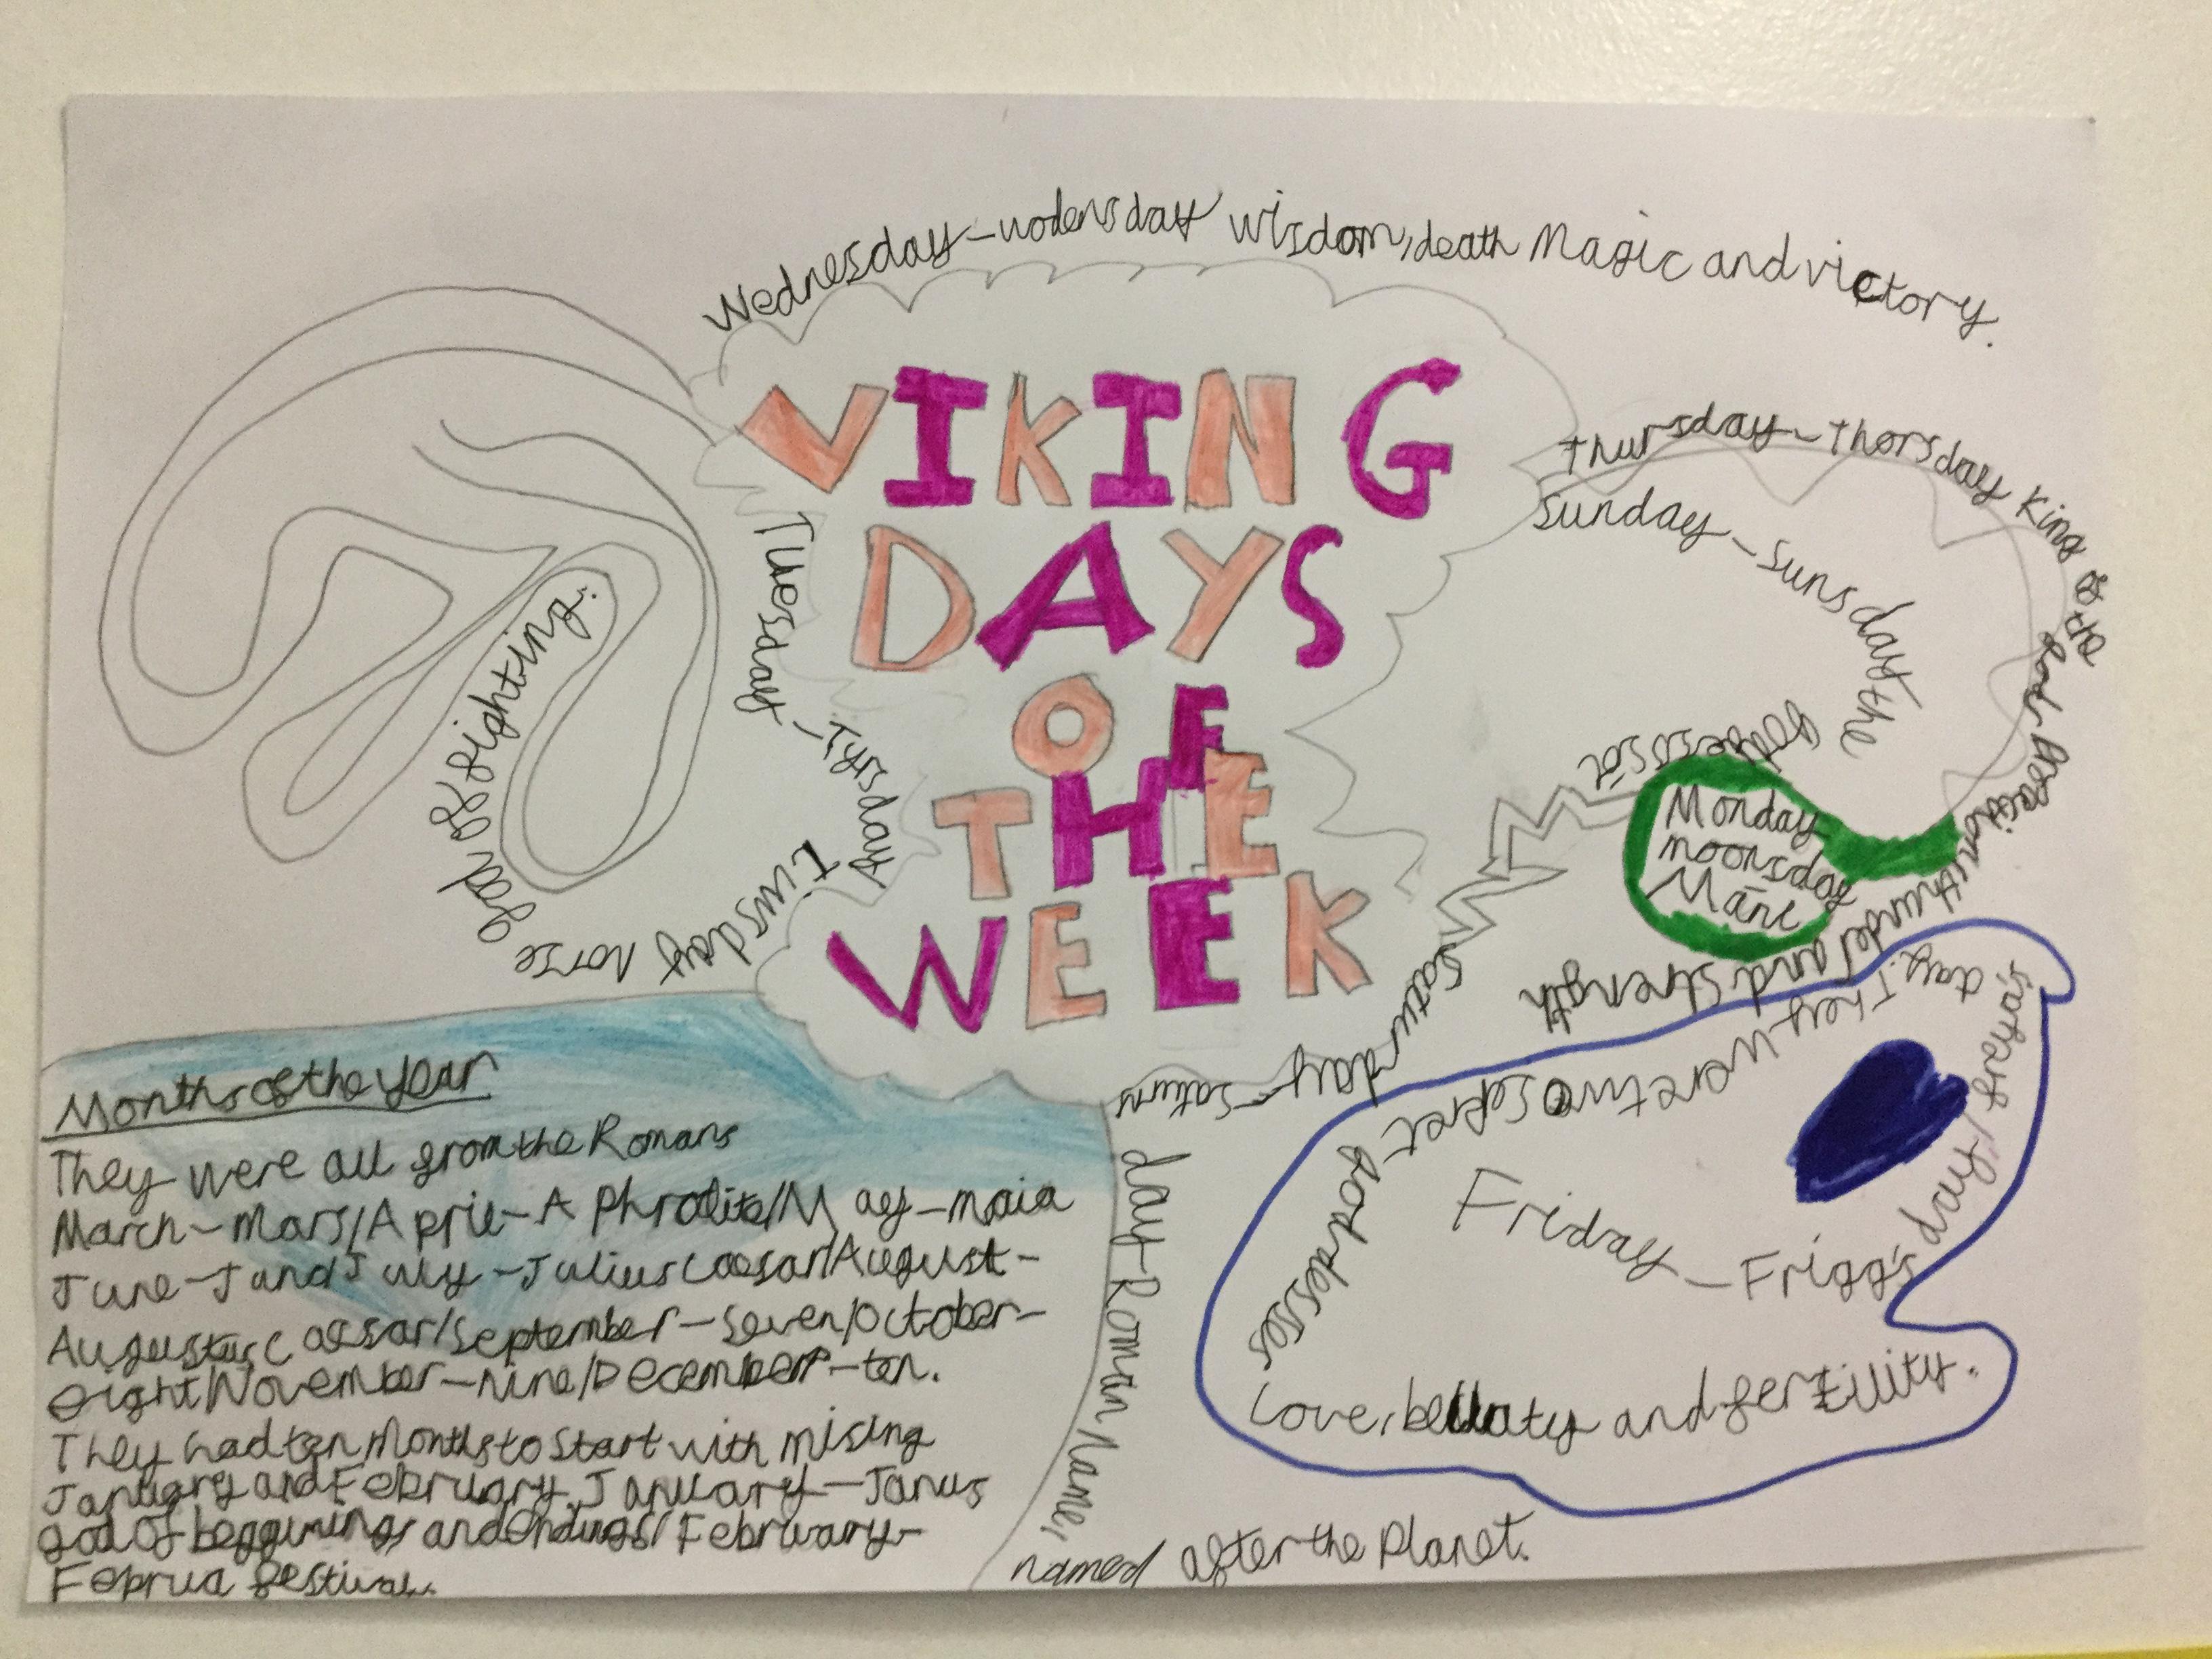 Wednesday-wodensday wisdom, death Magic and victory.
VIKING
DAYS
OF
THE
WEEK
Thursday-Thorsday King of the
and thunder and strength
Sunday-sunsday the
Monday
moonsday
Māni
Tuesday-
Tiwsday norse
god of fighting.
Saturday-Saturns
day-Roman name,
named after the Planet.
Friday-Frigg's day/
day. They were two
goddesses
Love, beauty and fertility.
Months of the year
They were all from the Romans
March-Mars/April-Aphrodite/May-maia
June-J and July-Julius Caesar/August-
Augustus Caesar/September-seven/October-
eight/November-nine/December-ten.
They had ten months to start with mising
January and February. January-Janus
god of beggining and endings/February-
Feprua festival.